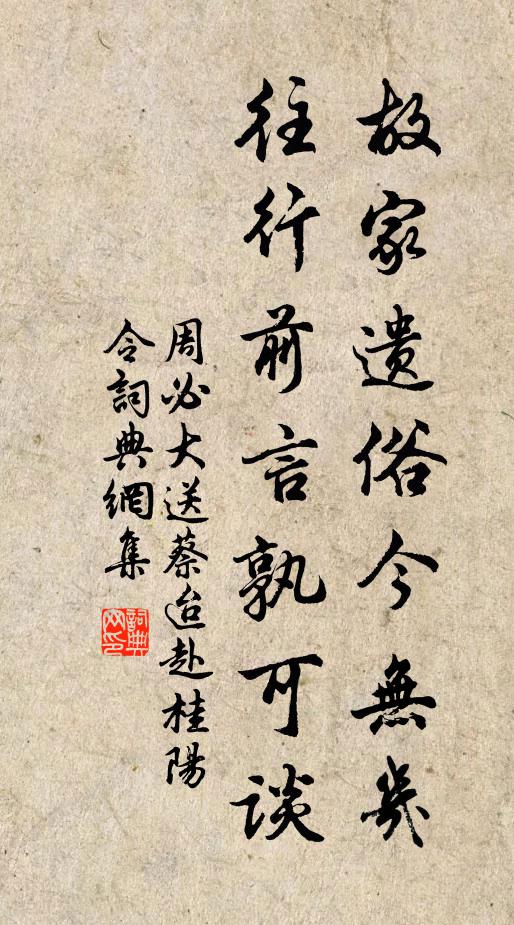 故家遺俗今無幾
往行前言孰可談
周必大送蔡迨赴桂陽
令詞典網集
詞典
网印